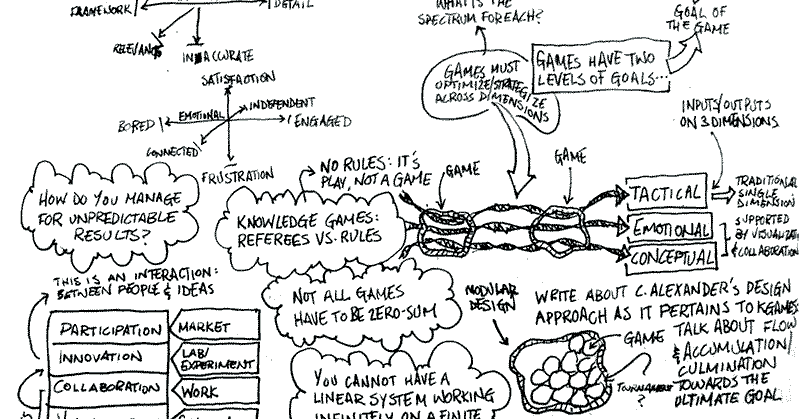 FRAMEWORK
DETAIL
RELEVANCE
INACCURATE
SATISFACTION
EMOTIONAL
INDEPENDENT
BORED
ENGAGED
CONNECTED
FRUSTRATION
WHAT IS THE
SPECTRUM FOR EACH?
GOAL OF
THE GAME
GAMES MUST
OPTIMIZE/STRATEGIZE
ACROSS DIMENSIONS
GAMES HAVE TWO
LEVELS OF GOALS...
INPUTS/OUTPUTS
ON 3 DIMENSIONS
HOW DO YOU MANAGE
FOR UNPREDICTABLE
RESULTS?
NO RULES: IT'S
PLAY, NOT A GAME
KNOWLEDGE GAMES:
REFEREES VS. RULES
GAME
GAME
TACTICAL
EMOTIONAL
CONCEPTUAL
TRADITIONAL
SINGLE
DIMENSION
SUPPORTED
BY VISUALIZATI
& COLLABORATION
THIS IS AN INTERACTION:
BETWEEN PEOPLE & IDEAS
PARTICIPATION
MARKET
INNOVATION
LAB/
EXPERIMENT
COLLABORATION
WORK
NOT ALL GAMES
HAVE TO BE ZERO-SUM
YOU CANNOT HAVE A
LINEAR SYSTEM WORKING
INFINITELY ON A FINITE
MODULAR
DESIGN
WRITE ABOUT C. ALEXANDER'S DESIGN
APPROACH AS IT PERTAINS TO KGAMES
GAME
TALK ABOUT FLOW
& ACCUMULATION/
CULMINATION
TOWARDS THE
ULTIMATE GOAL.
TOURNAMENT
?